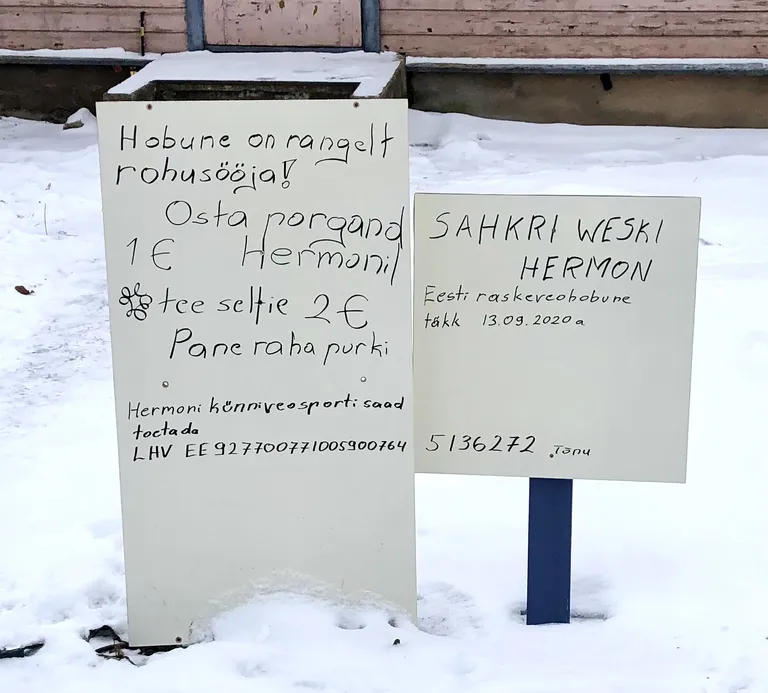 Hobune on rangelt
rohusööja!
Osta porgand
1 € Hermonil
tee selfie 2 €
Pane raha purki
Hermoni künniveosporti saad
toetada
LHV EE927700771005900764
SAHKRI WESKI
HERMON
Eesti raskeveohobune
täkk 13.09.2020a
5136272 Tõnu